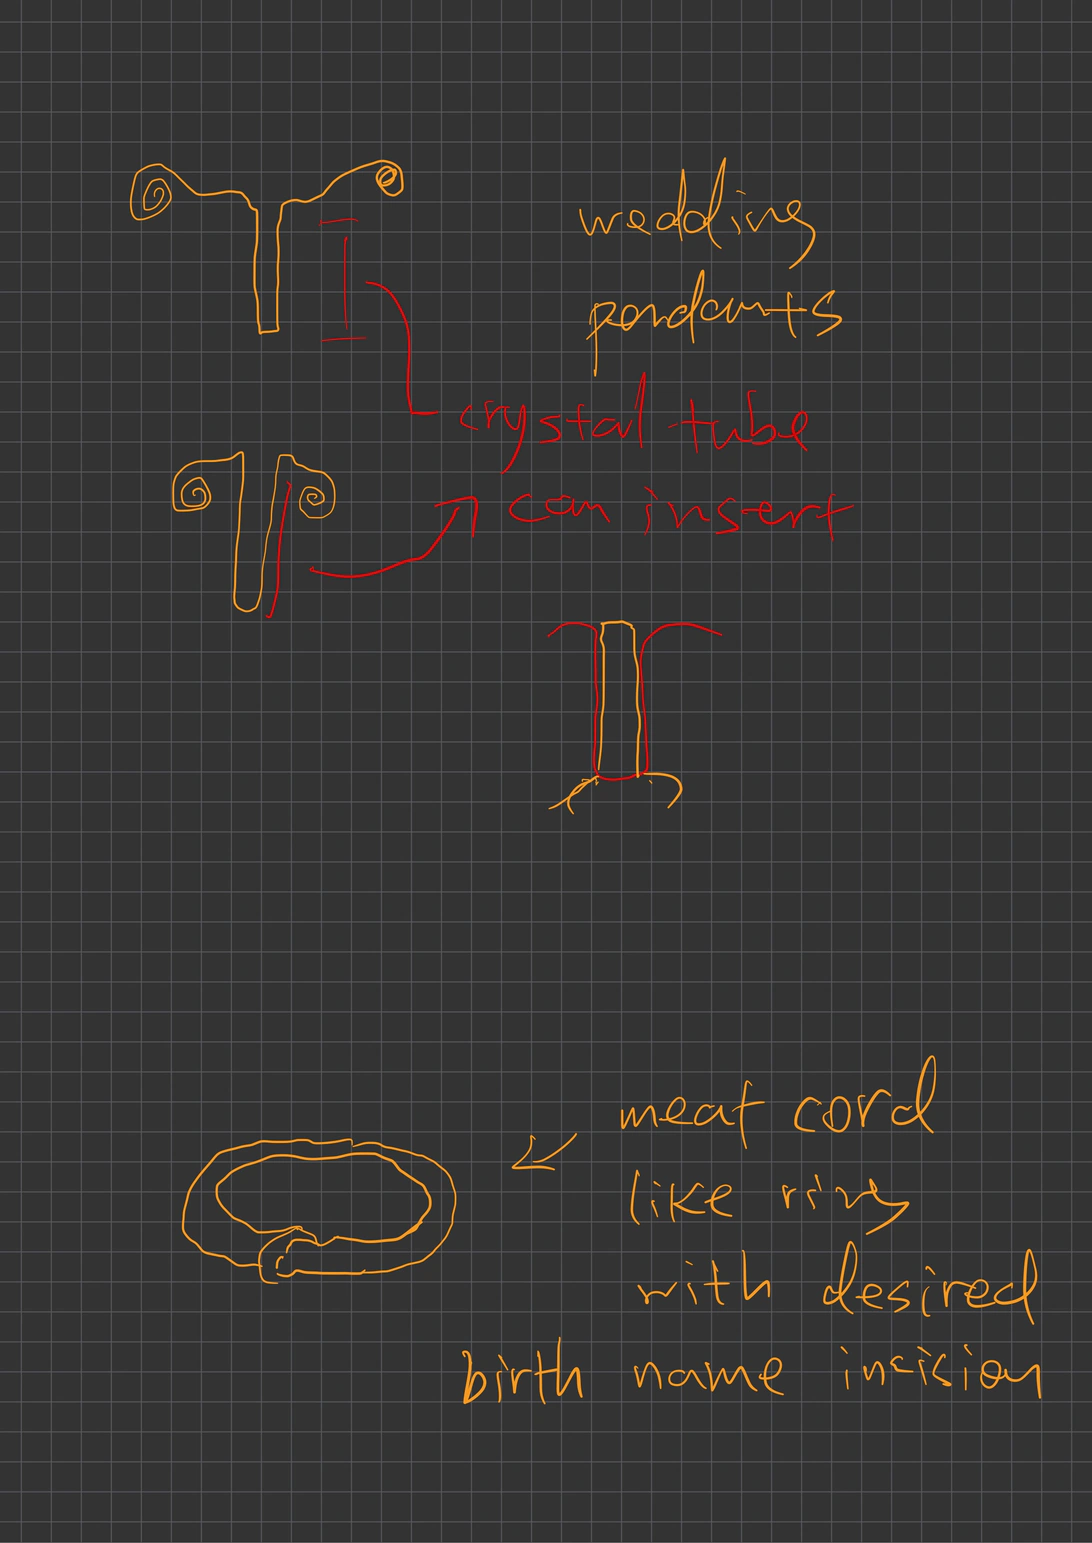 wedding
pendants
crystal tube
can insert
meat cord
like ring
with desired
birth name incision